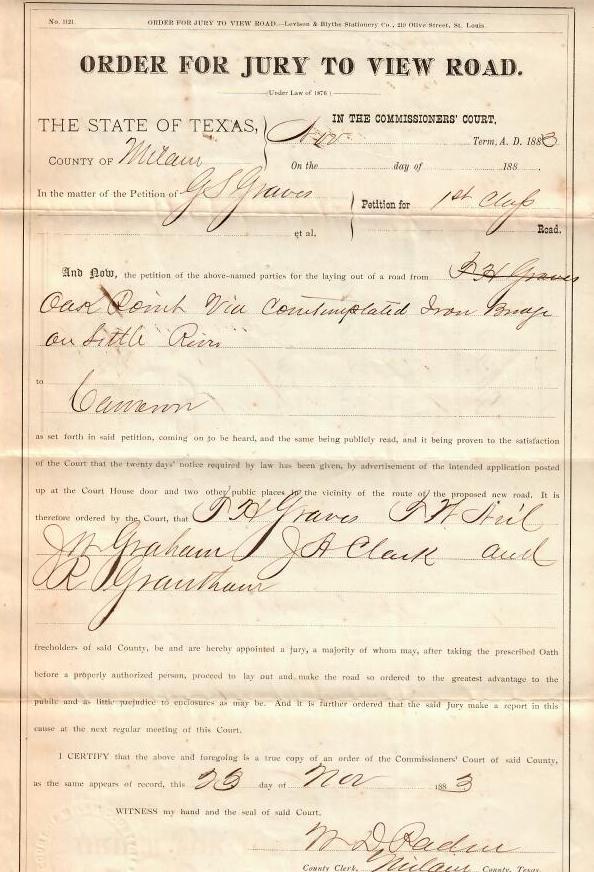 No. 1121. ORDER FOR JURY TO VIEW ROAD.—Levison & Blythe Stationery Co., 219 Olive Street, St. Louis
ORDER FOR JURY TO VIEW ROAD.
(Under Law of 1876)
THE STATE OF TEXAS,
COUNTY OF Milam
IN THE COMMISSIONERS' COURT,
Nov Term, A. D. 1883
On the day of 188
In the matter of the Petition of G S Graves
et al.
Petition for 1st Class
Road.
And Now, the petition of the above-named parties for the laying out of a road from F H Graves
Oak Point Via Comtemplated Iron Bridge
on Little River
to
Cameron
as set forth in said petition, coming on to be heard, and the same being publicly read, and it being proven to the satisfaction
of the Court that the twenty days' notice required by law has been given, by advertisement of the intended application posted
up at the Court House door and two other public places in the vicinity of the route of the proposed new road. It is
therefore ordered by the Court, that F H Graves F W
J W Graham J A Clark and
J R Grantham
freeholders of said County, be and are hereby appointed a jury, a majority of whom may, after taking the prescribed Oath
before a properly authorized person, proceed to lay out and make the road so ordered to the greatest advantage to the
public and as little prejudice to enclosures as may be. And it is further ordered that the said Jury make a report in this
cause at the next regular meeting of this Court.
I CERTIFY that the above and foregoing is a true copy of an order of the Commissioners' Court of said County,
as the same appears of record, this 23 day of Nov 1883
WITNESS my hand and the seal of said Court,
W D
County Clerk, Milam County, Texas.